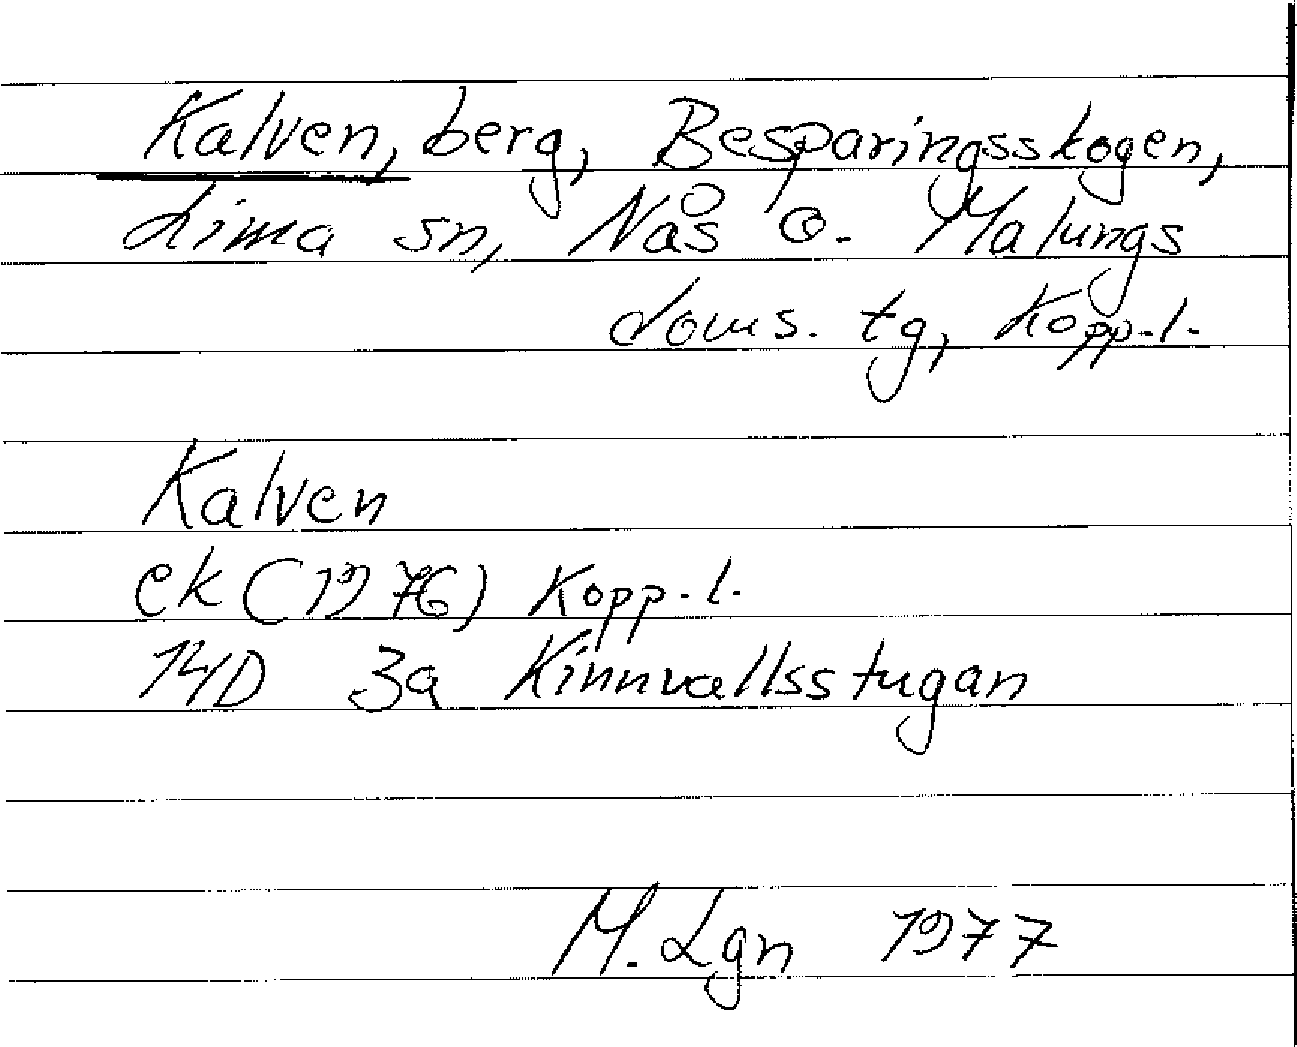 Kalven, berg, Besparingsskogen,
Lima sn, Nås o. Malungs
doms. tg, Kopp.l.
Kalven
ek (1976) Kopp.l.
14D 3a Kinnvallsstugan
M. Lgn 1977